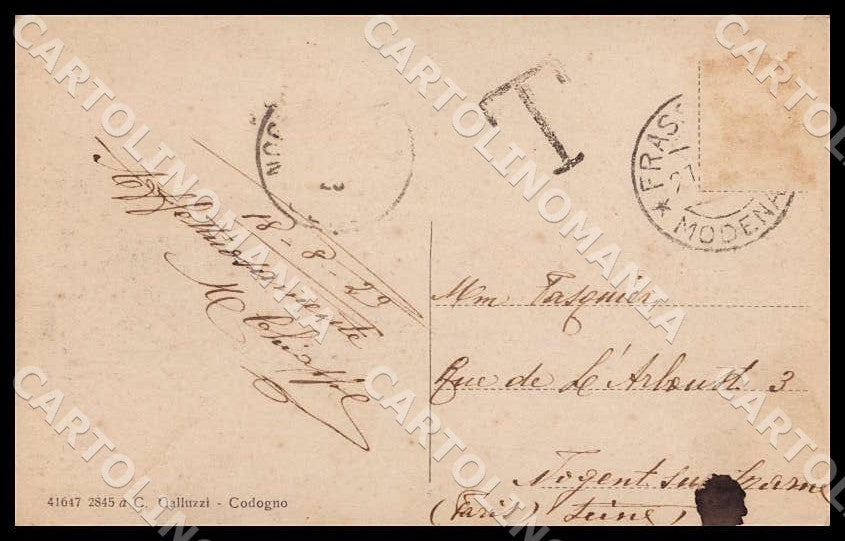 CARTOLINOMANIA CARTOLINOMANIA CARTOLINOMANIA
T
FRAS
27
MODENA
CON
18-8-29
Affettuosamente
M Chiappe
Mm Pasquier
Rue de L'Arboust 3
Nogent sur Marne
(Paris) Seine
41647 2845 a C. Galluzzi - Codogno
CARTOLINOMANIA CARTOLINOMANIA CARTOLINOMANIA